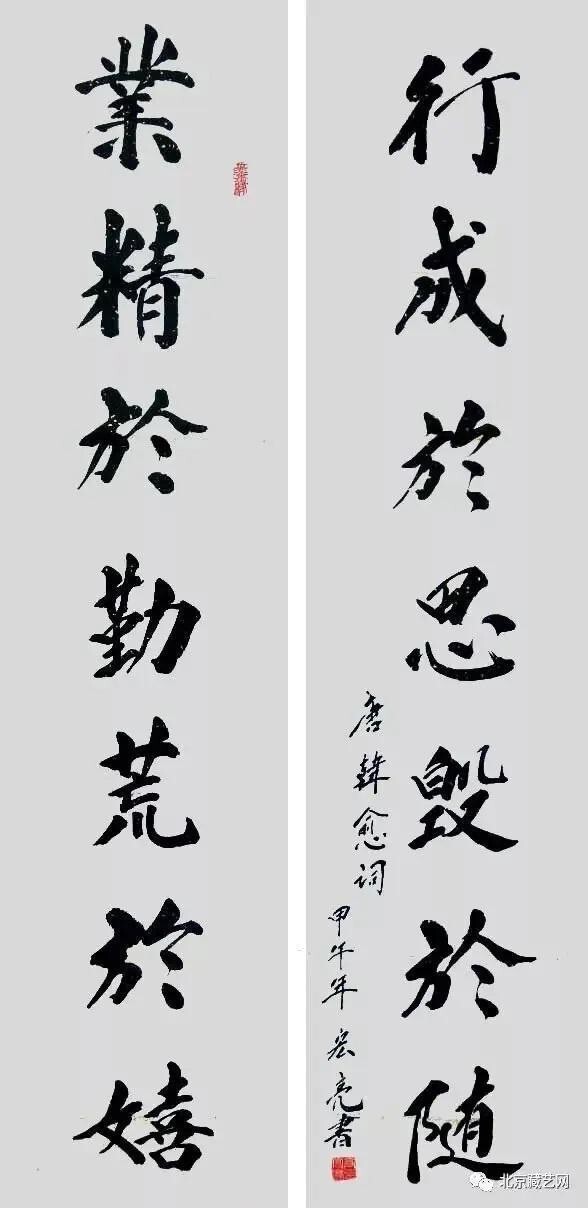 業精於勤荒於嬉
行成於思毁於随
唐韓愈词
甲午年宏亮書
北京藏艺网